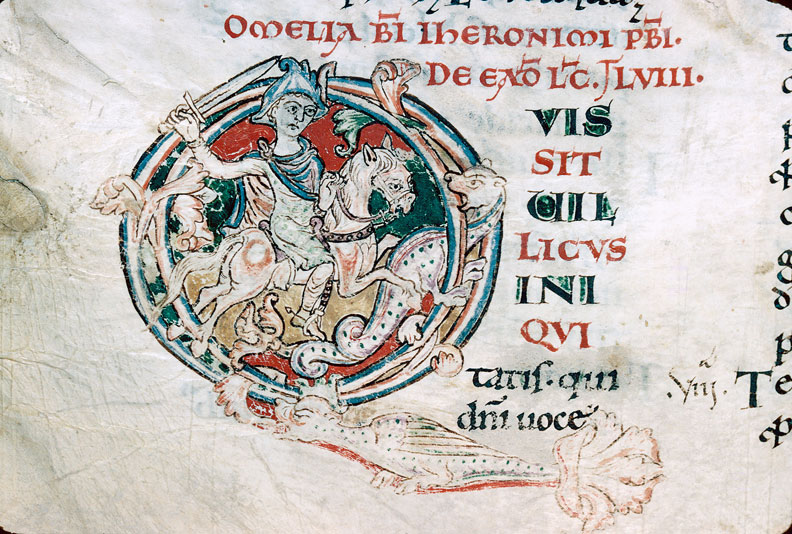 OMELIA B̄I IHERONIMI P̄BI.
DE EAD̄ L̄C. JLVIII.
Q
VIS
SIT
VIL
LICVS
INI
QVI
tatis. qui
dn̄i uoce
.Viij.a
Te